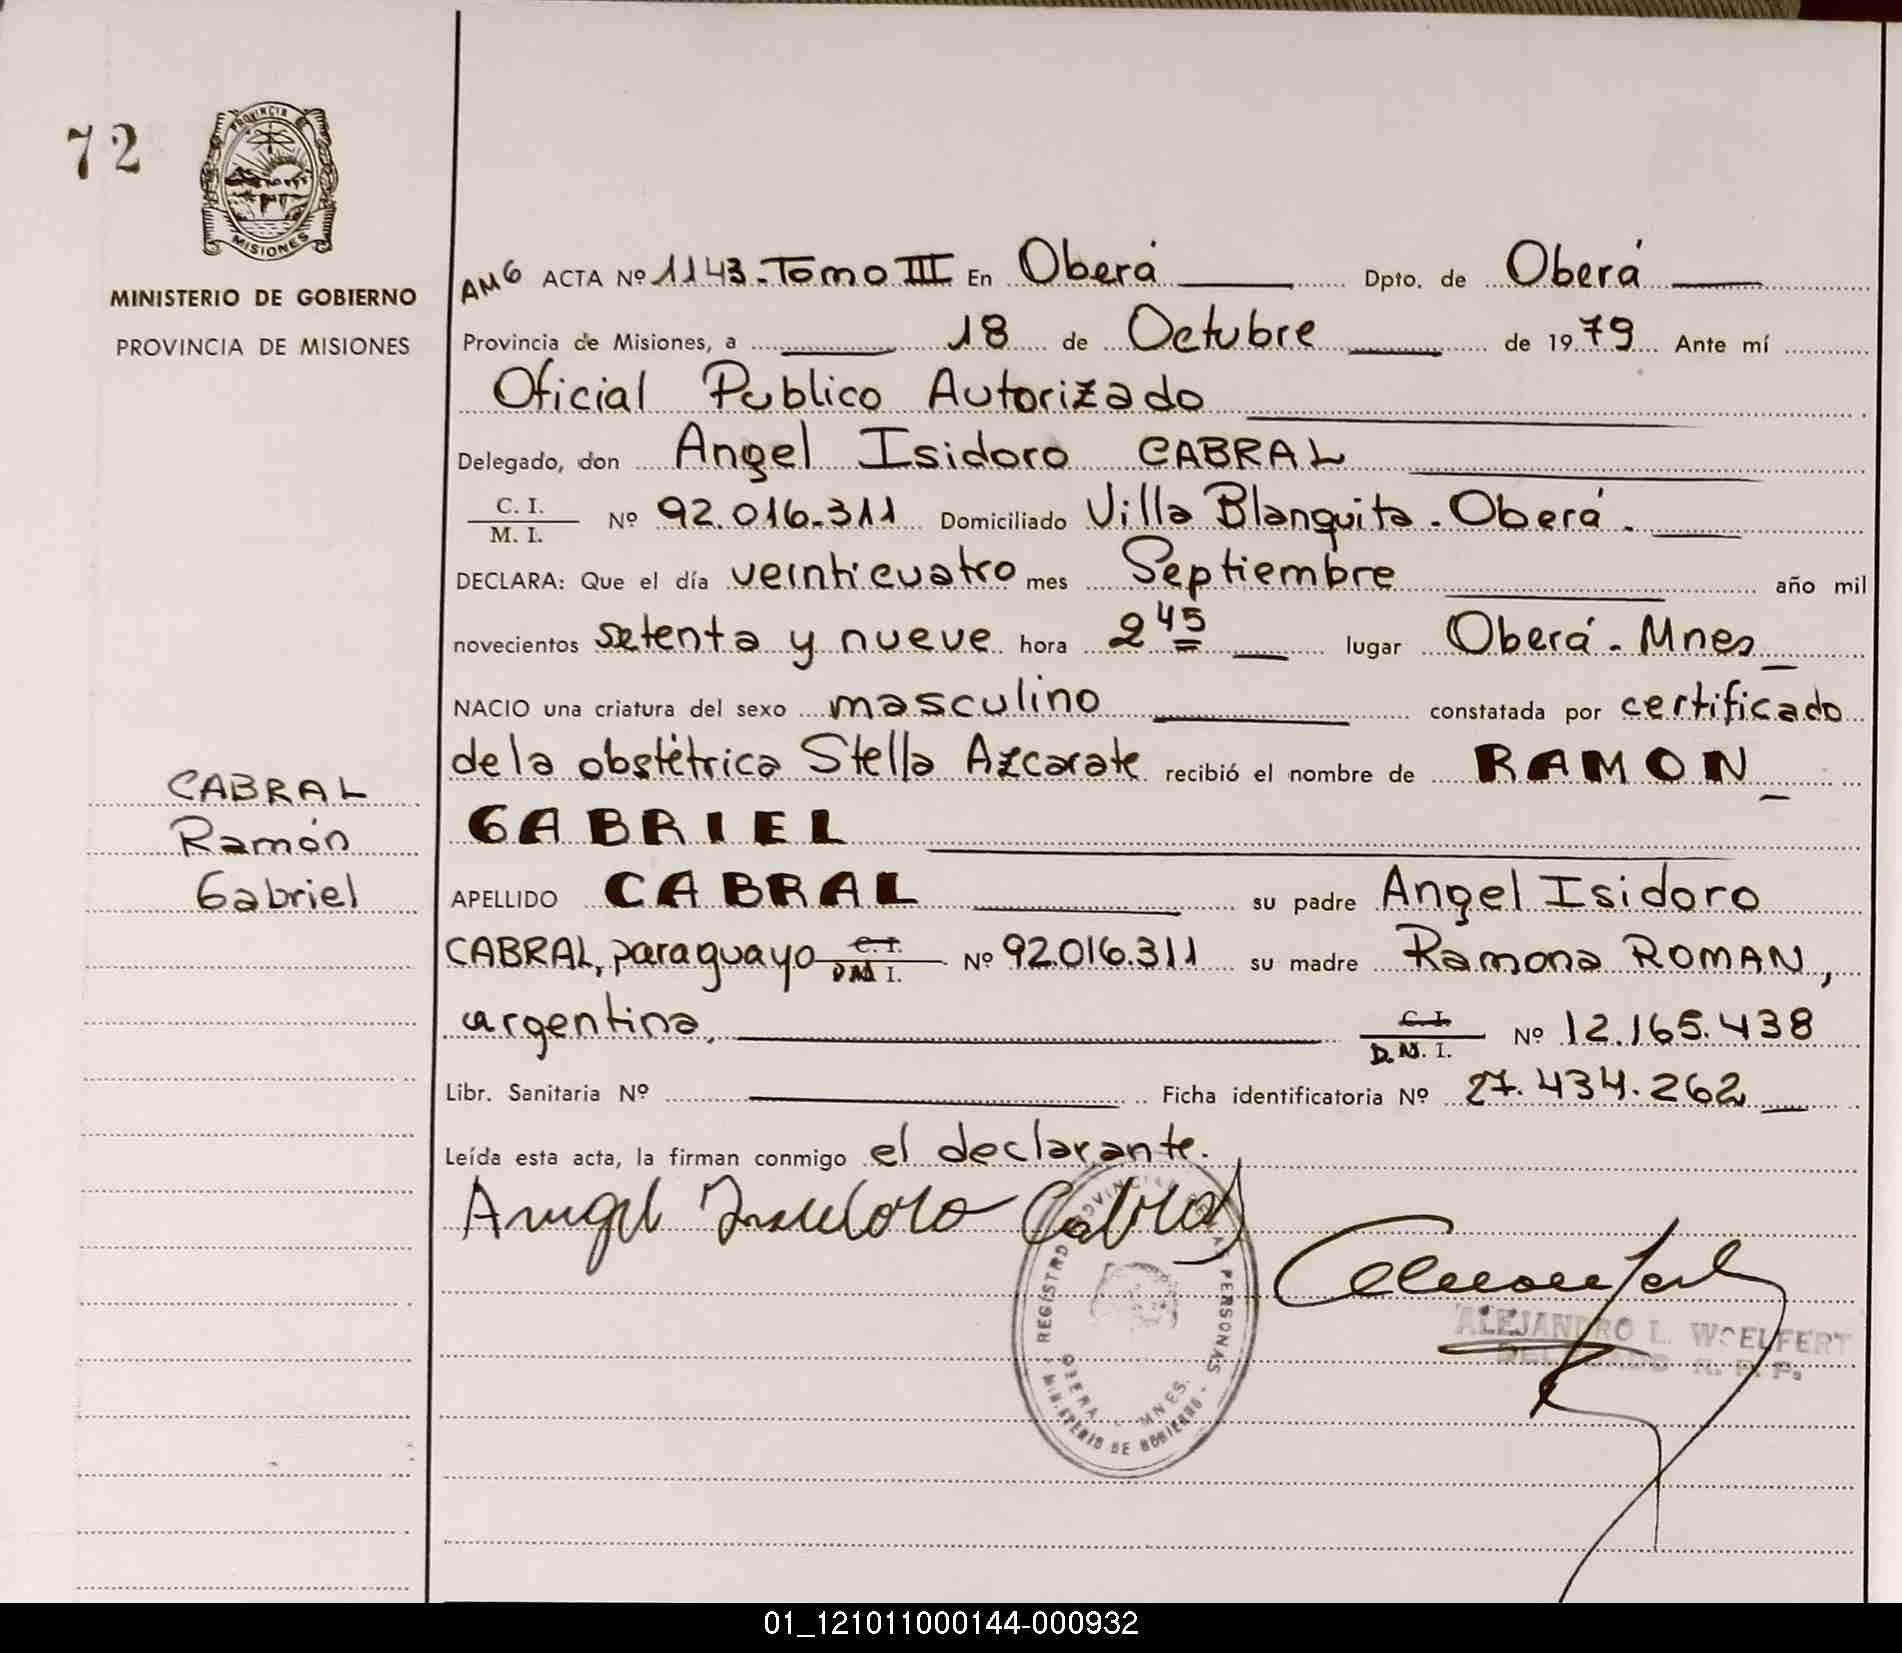 72
PROVINCIA DE
MISIONES
MINISTERIO DE GOBIERNO
PROVINCIA DE MISIONES
AMG ACTA Nº 1143.-Tomo III En Oberá Dpto. de Oberá
Provincia de Misiones, a 18 de Octubre de 1979 Ante mí
Oficial Publico Autorizado
Delegado, don Angel Isidoro CABRAL
C. I.
M. I. Nº 92.016.311 Domiciliado Villa Blanquita. Oberá.
DECLARA: Que el día veinticuatro mes Septiembre año mil
novecientos setenta y nueve hora 2 45 lugar Oberá - Mnes
NACIO una criatura del sexo masculino constatada por certificado
de la obstétrica Stella Azcarate recibió el nombre de RAMON
GABRIEL
APELLIDO CABRAL su padre Angel Isidoro
CABRAL, paraguayo C. I. D.N.I. Nº 92.016.311 su madre Ramona ROMAN,
argentina, C. I. D.N.I. Nº 12.165.438
Libr. Sanitaria Nº Ficha identificatoria Nº 27.434.262
Leída esta acta, la firman conmigo el declarante.
CABRAL
Ramón
Gabriel
Angel Isidoro Cabral
REGISTRO PROVINCIAL DE LAS PERSONAS
OBERA - MNES.
MINISTERIO DE GOBIERNO
ALEJANDRO L. WOELFERT
DELEGADO R. P. P.
01_121011000144-000932